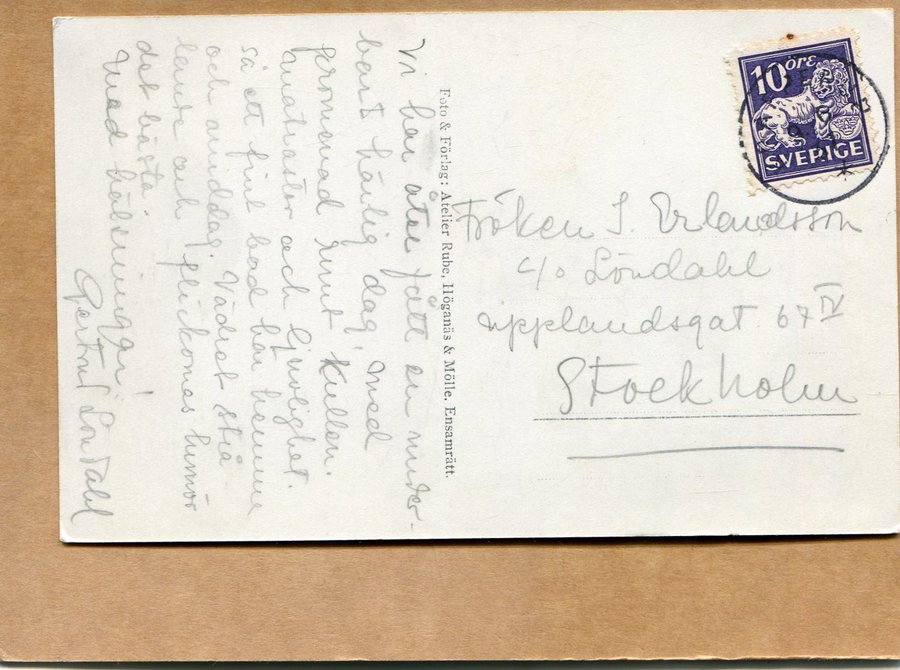 Vi har åter fått en under-
bart härlig dag, med
promenad runt Kullen.
matrester och ljuvlighet.
så ett fint bad här hemma
och middag. Vädret strå-
lande och flickornas humör
det bästa.
Med hälsningar!
Gertrud Löndahl
Foto & Förlag: Atelier Rube, Höganäs & Mölle. Ensamrätt.
10 öre
SVERIGE
Fröken I. Erlandsson
c/o Löndahl
Upplandsgat. 67 IV
Stockholm